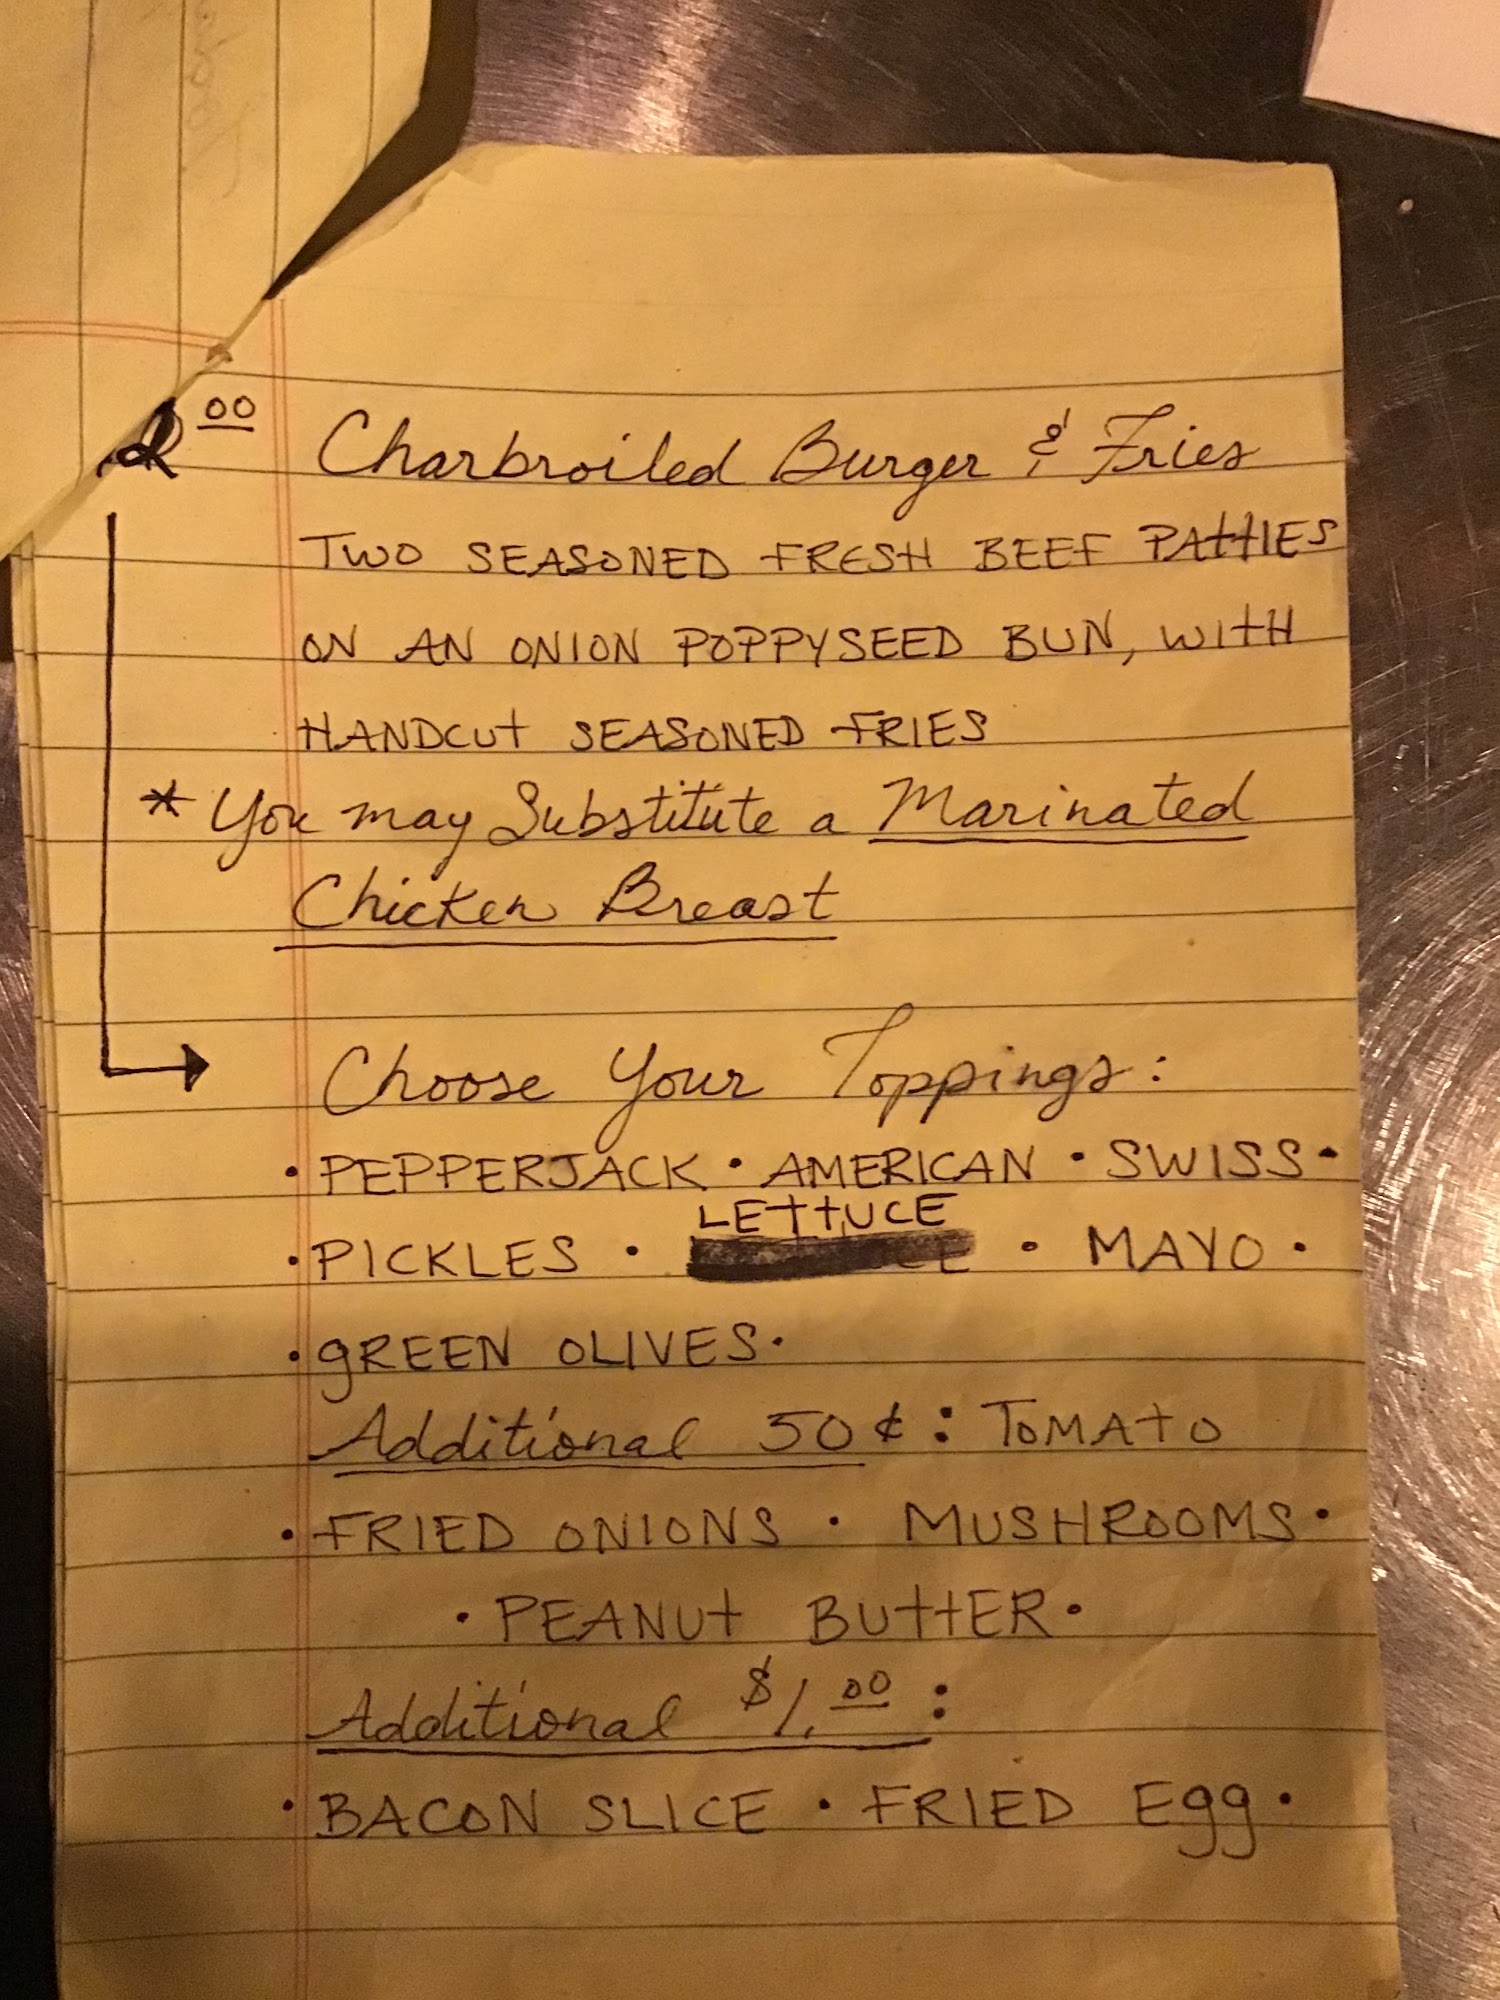 2 00 Charbroiled Burger & Fries
TWO SEASONED FRESH BEEF PATTIES
ON AN ONION POPPYSEED BUN, WITH
HANDCUT SEASONED FRIES
* You may Substitute a Marinated
Chicken Breast
Choose Your Toppings:
• PEPPERJACK • AMERICAN • SWISS •
LETTUCE
• PICKLES • • MAYO •
• GREEN OLIVES •
Additional 50¢: TOMATO
• FRIED ONIONS • MUSHROOMS •
• PEANUT BUTTER •
Additional $1.00:
• BACON SLICE • FRIED Egg •